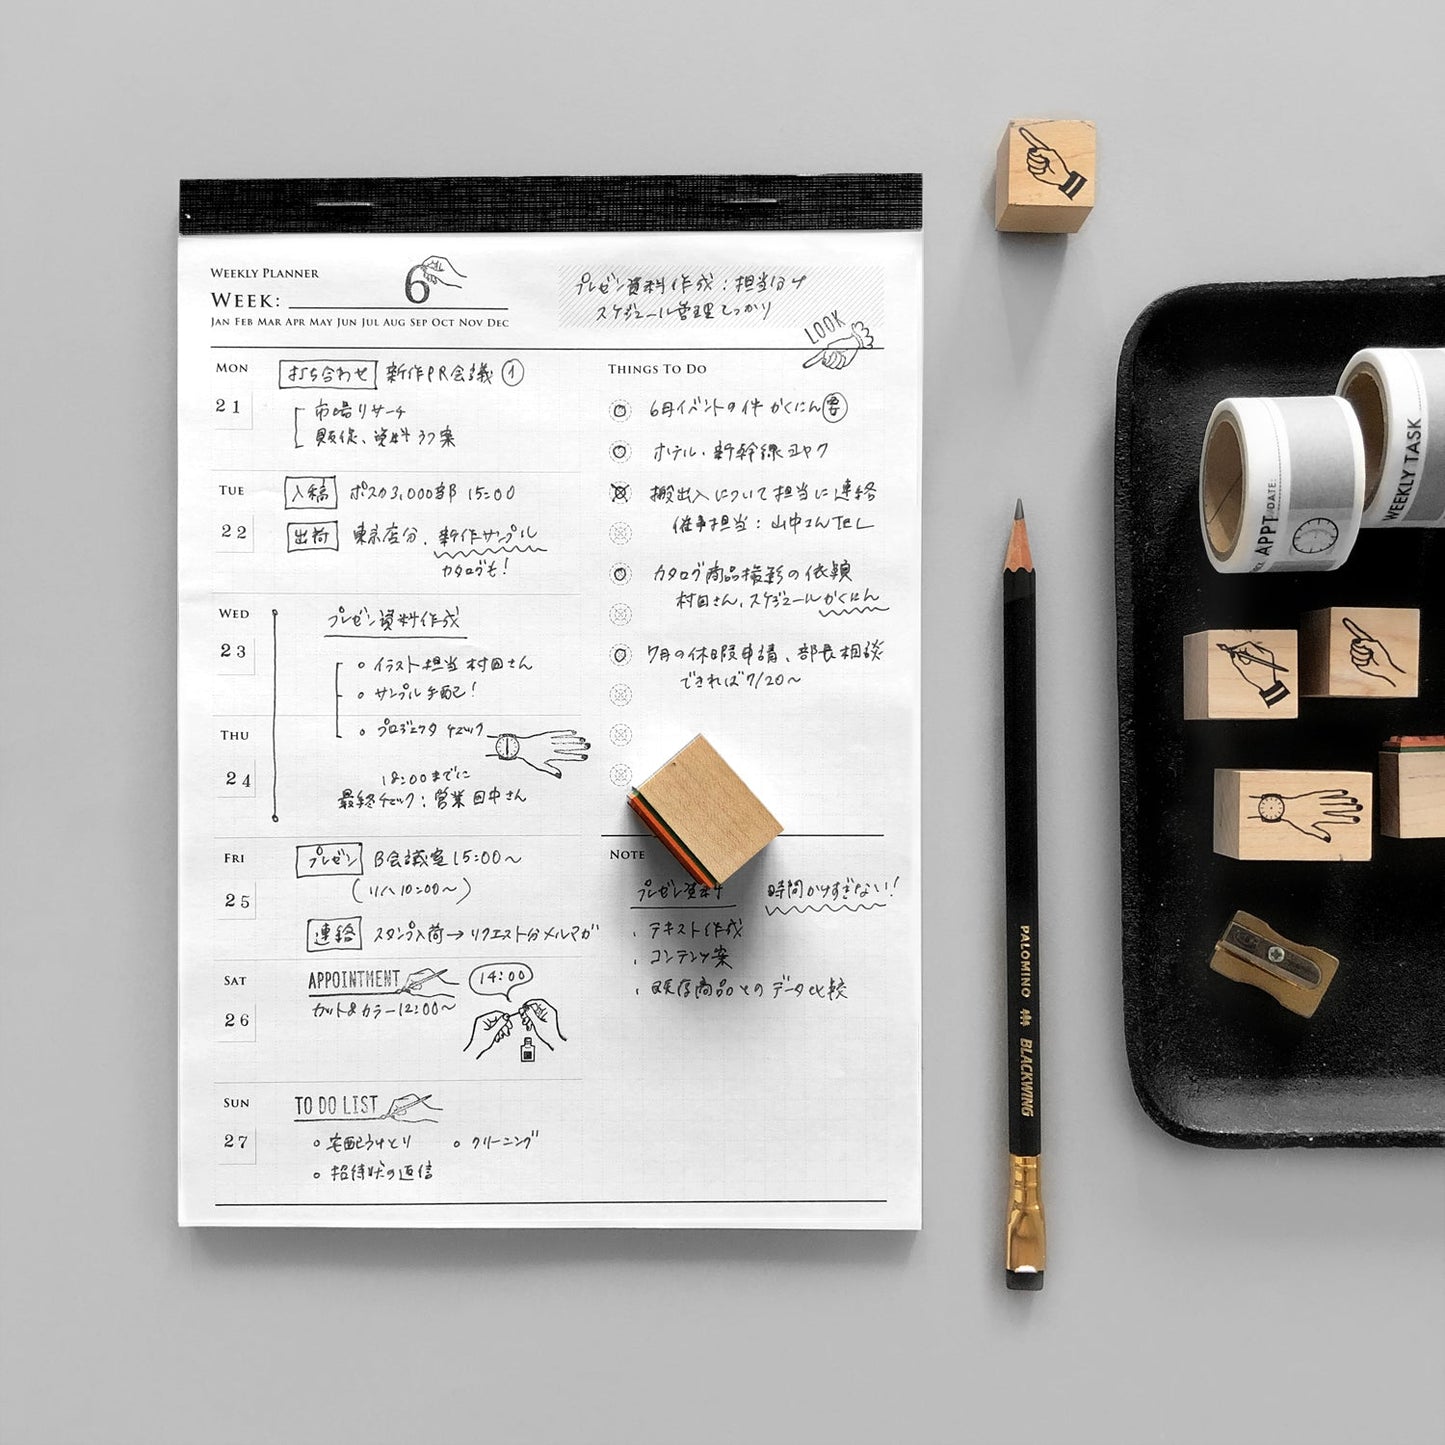 WEEKLY PLANNER
WEEK: 6
JAN FEB MAR APR MAY JUN JUL AUG SEP OCT NOV DEC
プレゼン資料作成：担当分け
スケジュール管理しっかり
LOOK
MON
21
打ち合わせ 新作PR会議 ①
市場リサーチ
販促、資料 3つ案
TUE
22
入稿 ポスカ3,000部 15:00
出荷 東京店分、新作サンプル
カタログも！
WED
23
プレゼン資料作成
イラスト担当 村田さん
サンプル手配！
THU
24
プロジェクタ チェック
18:00までに
最終チェック：営業 田中さん
FRI
25
プレゼン B会議室 15:00〜
(リハ10:00〜)
連絡 スタンプ入荷→リクエスト分メルマガ
SAT
26
APPOINTMENT
カット&カラー12:00〜
14:00
SUN
27
TO DO LIST
宅配うけとり
クリーニング
招待状の返信
THINGS TO DO
6月イベントの件 かくにん 要
ホテル・新幹線ヨヤク
搬出入について担当に連絡
催事担当：山中さんTEL
カタログ商品撮影の依頼
村田さん、スケジュールかくにん
7月の休暇申請、部長相談
できれば7/20〜
NOTE
プレゼン資料
時間かけすぎない！
テキスト作成
コンテンツ案
既存商品とのデータ比較
PALOMINO BLACKWING
APPT
DATE:
WEEKLY TASK